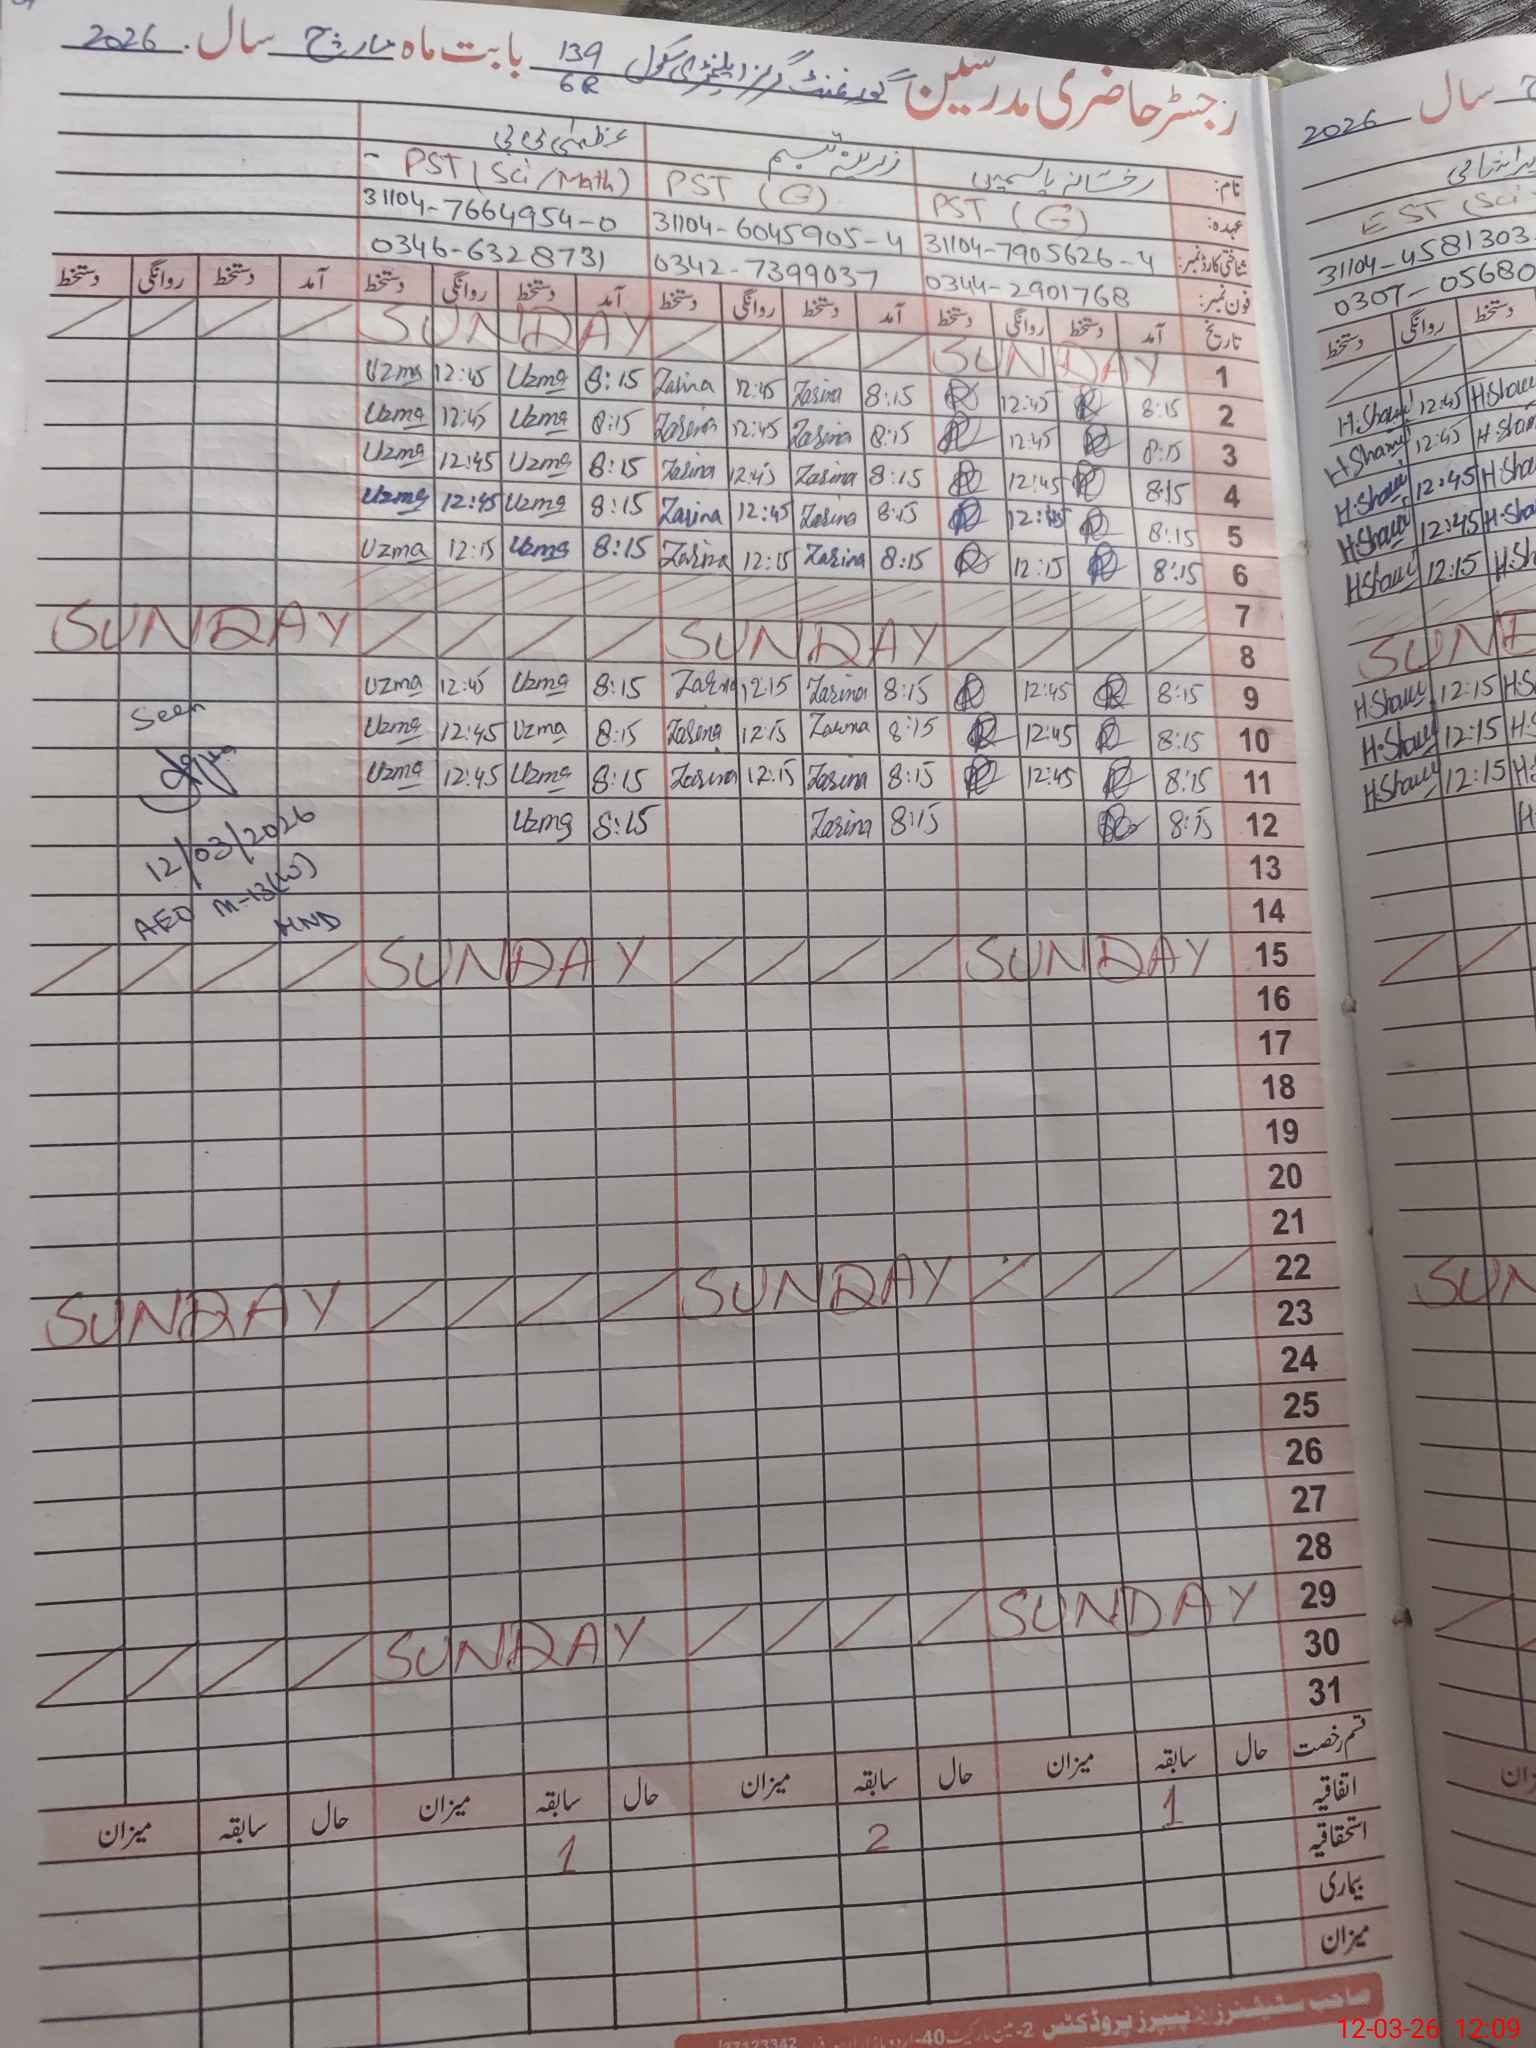 رجسٹر حاضری مدرسین گورنمنٹ گرلز ایلیمنٹری سکول 139/6R بابت ماہ مارچ سال 2026
نام: رخسانہ یاسمین زرینہ تبسم عظمٰی بی بی
عہدہ: PST (G) PST (G) PST (Sci/Math)
شناختی کارڈ نمبر: 31104-7905626-4 31104-6045905-4 31104-7664954-0
فون نمبر: 0344-2901768 0342-7399037 0346-6328731
تاریخ آمد دستخط روانگی دستخط آمد دستخط روانگی دستخط آمد دستخط روانگی دستخط آمد دستخط روانگی دستخط
1 SUNDAY SUNDAY
2 8:15 12:45 8:15 Zarina 12:45 Zarina 8:15 Uzma 12:45 Uzma
3 8:15 12:45 8:15 Zarina 12:45 Zarina 8:15 Uzma 12:45 Uzma
4 8:15 12:45 8:15 Zarina 12:45 Zarina 8:15 Uzma 12:45 Uzma
5 8:15 12:45 8:15 Zarina 12:45 Zarina 8:15 Uzma 12:45 Uzma
6 8:15 12:15 8:15 Zarina 12:15 Zarina 8:15 Uzma 12:15 Uzma
7
8 SUNDAY SUNDAY
9 8:15 12:45 8:15 Zarina 12:15 Zarina 8:15 Uzma 12:45 Uzma
10 8:15 12:45 8:15 Zarina 12:15 Zarina 8:15 Uzma 12:45 Uzma
11 8:15 12:45 8:15 Zarina 12:15 Zarina 8:15 Uzma 12:45 Uzma
12 8:15 8:15 Zarina 8:15 Uzma
Seen
12/03/2026
AEO M-13(W)
HND
13
14
15 SUNDAY SUNDAY
16
17
18
19
20
21
22 SUNDAY SUNDAY
23
24
25
26
27
28
29 SUNDAY SUNDAY
30
31
قسم رخصت حال سابقہ میزان حال سابقہ میزان حال سابقہ میزان حال سابقہ میزان
اتفاقیہ 1 2 1
استحقاقیہ
بیماری
میزان
صاحب سٹیشنرز اینڈ پیپرز پروڈکٹس
سال 2026
EST (Sci
31104-4581303
0307-05680
دستخط روانگی دستخط
H.Shawl 12:45 H.Shawl
H.Shawl 12:45 H.Sha
H.Shawl 12:45 H.Sha
H.Shawl 12:45 H.Sha
H.Shawl 12:15 H.Sh
SUND
H.Shawl 12:15 H.S
H.Shawl 12:15 H.S
H.Shawl 12:15 H.S
H
SUN
12-03-26 12:09